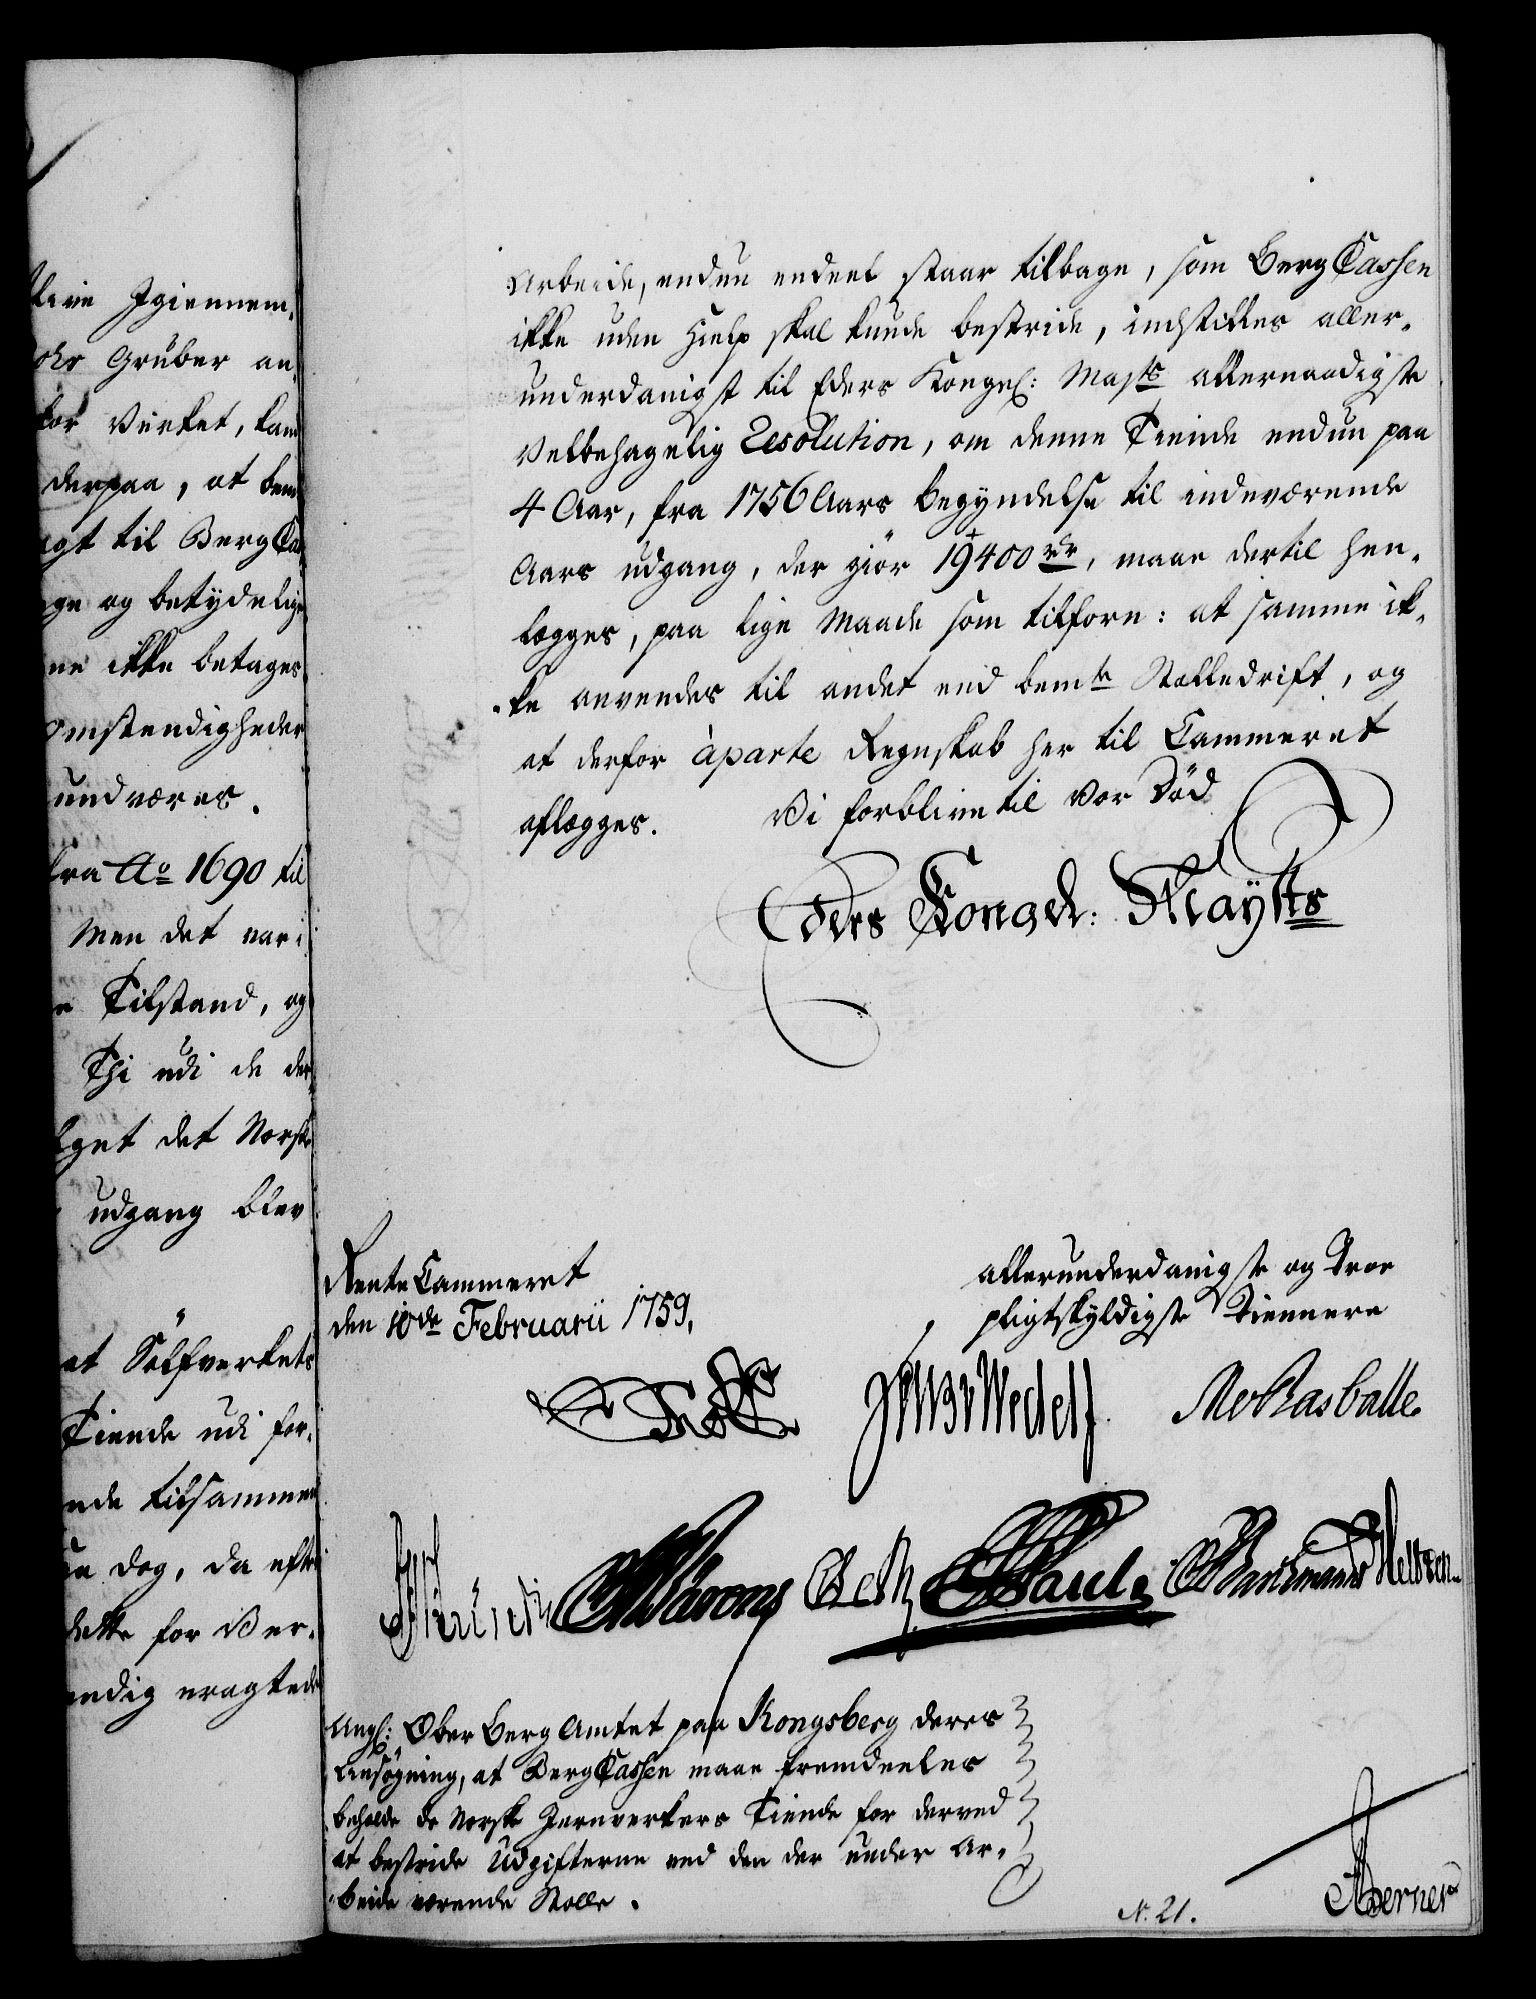 live Igiennem¬
ohr Gruber an¬
for Verket, kand
derpaa, at bem
agt til Berg Ca
ge og betydelige
ne ikke betages
omstendigheder
undværes.
fra Ao 1690 til
Men det var i
Tilstand, og
Thi udi de der
lget det Norske
udgang blev
at Sölfverkets
Tiende udi for¬
nde tilsammen
dog, da efter
dette for Ver¬
endig eragtede
Arbeide, endnu endeel staar tilbage, som Berg Cassen
ikke uden Hielp skal kunde bestride, indstilles aller¬
underdanigst til Eders Kongel: Majts allernaadigste
Velbehagelig Resolution, om denne Tiende endnu paa
4 Aar, fra 1756 Aars begyndelse til indeværende
Aars udgang, der giör 19400 rdr, maae dertil hen¬
lægges, paa lige Maade som tilforn: at samme ik¬
ke anvendes til andet end bemte Stolledrift, og
at derfor àparte Regnskab her til Cammeret
aflægges. Vi forblive til vor Död
Eders Kongel: Mayts
Rente Cammeret
den 10de Februarii 1759.
allerunderdanigste og Troe
pligtskyldigste Tiennere
Wedell
Rasballe
Paul
Angl: Ober Berg Amtet paa Kongsberg deres
Ansøgning, at Berg Cassen maae fremdeeles
beholde de Norske Jernverkers Tiende for derved
at bestride Udgifterne ved den der under Ar¬
beide værende Stolle.
N. 21.
Berner